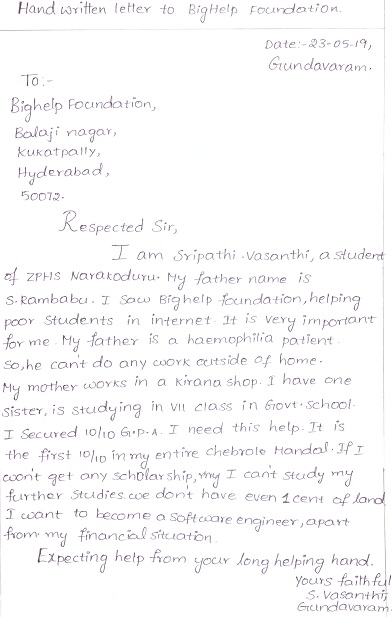 Hand written letter to BigHelp Foundation.
Date:-23-05-19,
Gundavaram.
To:-
Bighelp Foundation,
Balaji nagar,
Kukatpally,
Hyderabad,
50072.
Respected Sir,
I am Sripathi.Vasanthi, a student
of ZPHS Narakoduru. My father name is
S.Rambabu. I saw Bighelp foundation, helping
poor students in internet. It is very important
for me. My father is a haemophilia patient.
So, he can't do any work outside of home.
My mother works in a kirana shop. I have one
sister, is studying in VII class in Govt. school.
I secured 10/10 G.P.A. I need this help. It is
the first 10/10 in my entire chebrole Mandal. If I
won't get any scholarship, I can't study my
further studies. we don't have even 1 cent of land
I want to become a software engineer, apart
from my financial situation.
Expecting help from your long helping hand.
Yours faithful
S. Vasanthi,
Gundavaram.